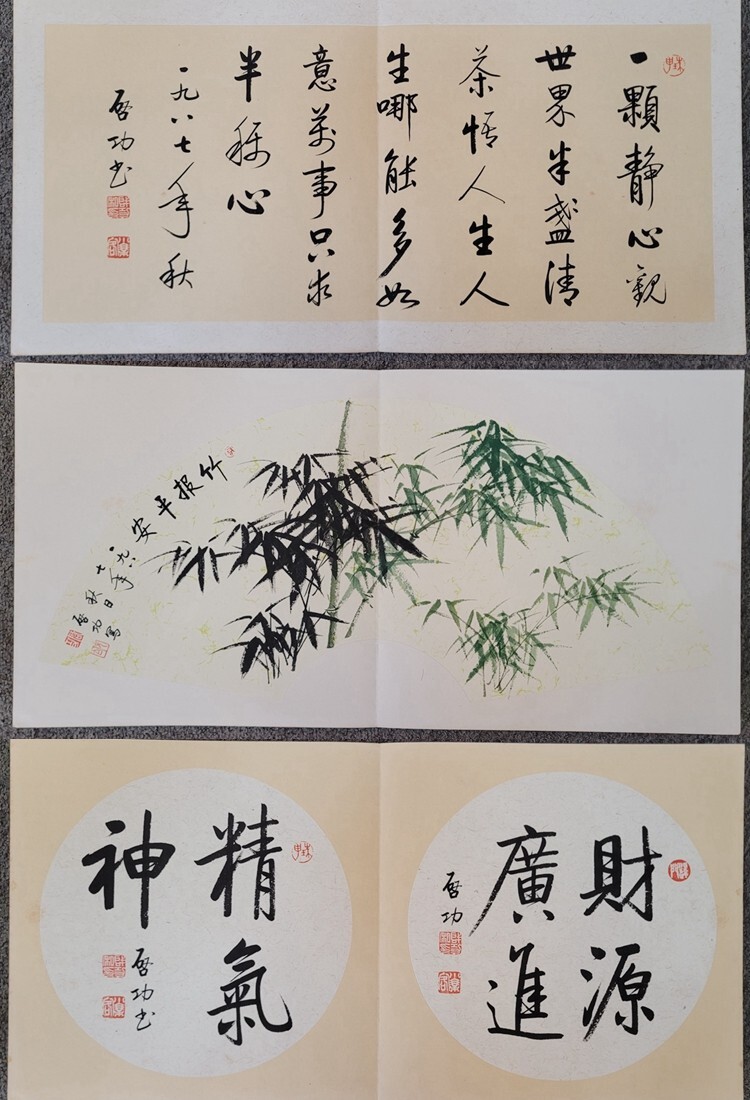 一顆静心觀
世界半盞清
茶悟人生人
生哪能多如
意萬事只求
半稱心
一九八七年秋
啓功书
竹报平安
一九八
七年
秋日
啓功写
財源
廣進
啓功
精氣
神
啓功书